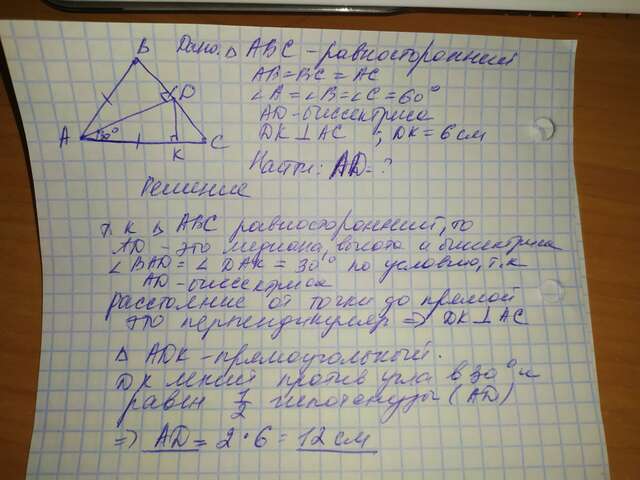 Дано: △ ABC - равносторонний
AB = BC = AC
∠A = ∠B = ∠C = 60°
AD - биссектриса
DK ⊥ AC ; DK = 6 см
Найти: AD - ?
B
D
A
30°
K
C
Решение
Т. к △ ABC равносторонний, то
AD - это медиана, высота и биссектриса
∠BAD = ∠DAK = 30° по условию, т.к
AD - биссектриса
Расстояние от точки до прямой
это перпендикуляр ⇒ DK ⊥ AC
△ ADK - прямоугольный.
DK лежит против угла в 30° и
равен 1/2 гипотенузы (AD)
⇒ AD = 2 · 6 = 12 см